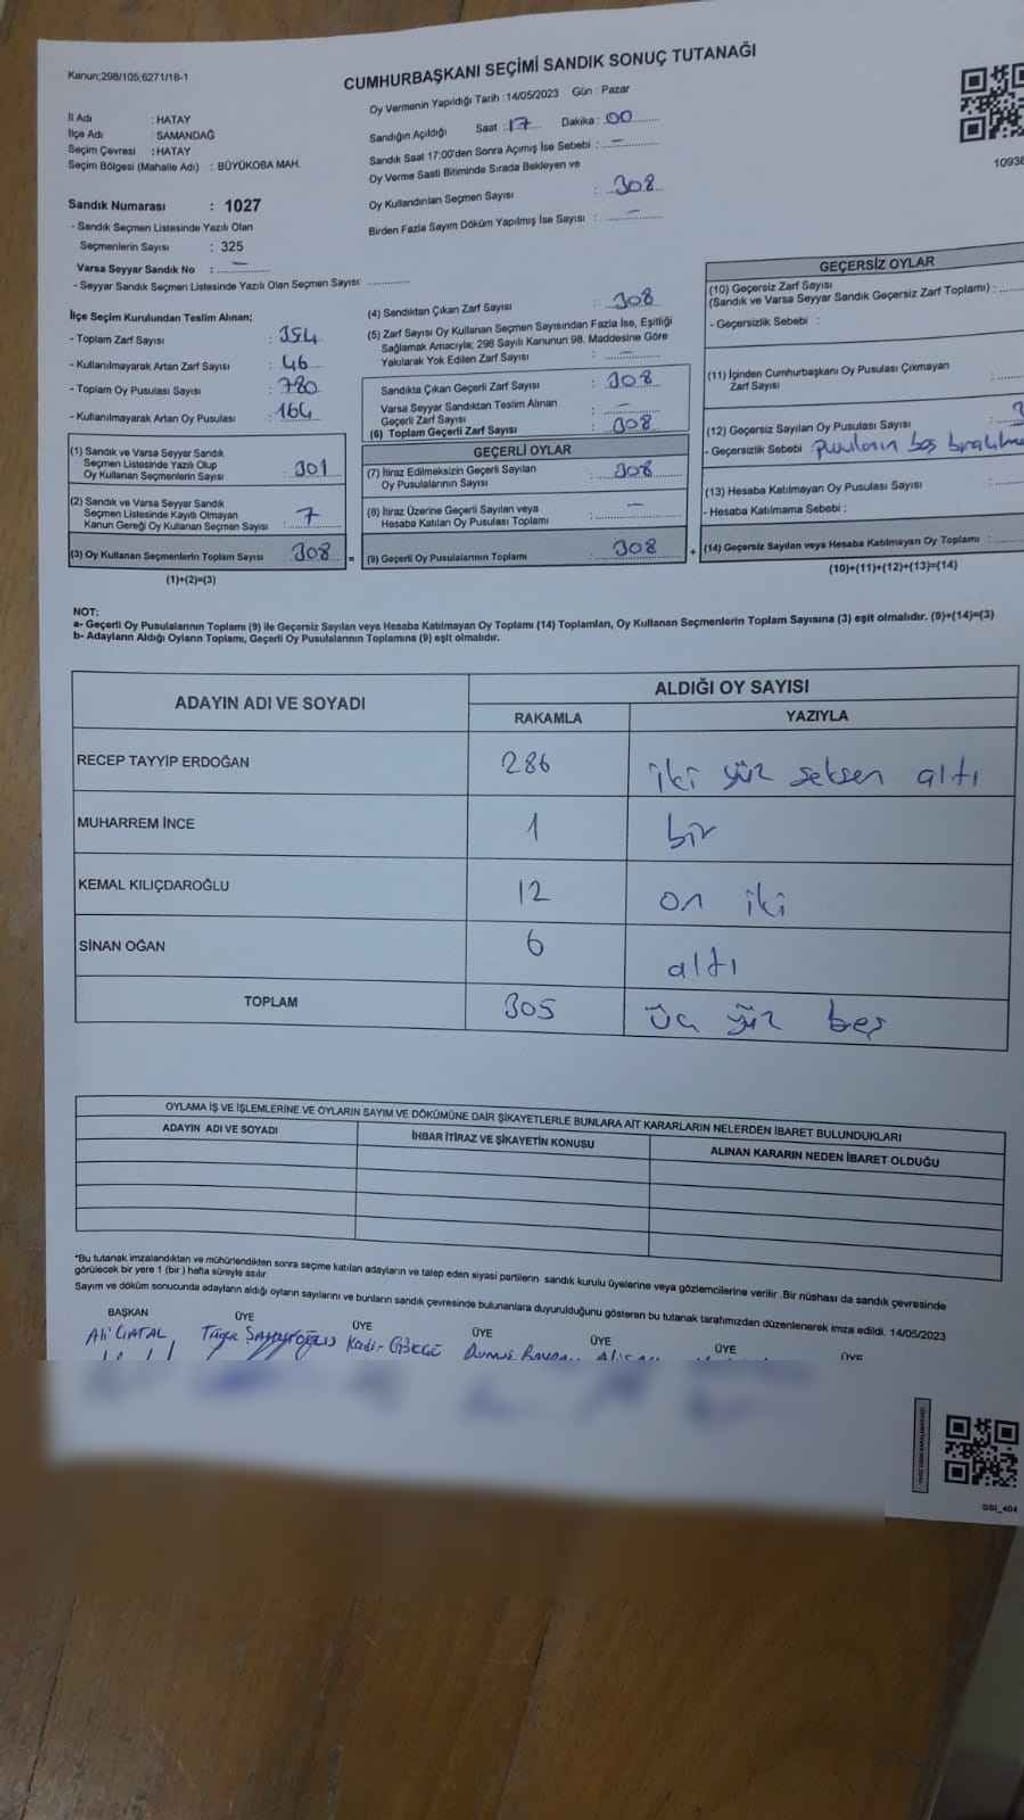 Kanun;298/105;6271/18-1
CUMHURBAŞKANI SEÇİMİ SANDIK SONUÇ TUTANAĞI
Oy Vermenin Yapıldığı Tarih :14/05/2023 Gün : Pazar
İl Adı : HATAY
İlçe Adı : SAMANDAĞ
Seçim Çevresi : HATAY
Seçim Bölgesi (Mahalle Adı) : BÜYÜKOBA MAH.
Sandık Numarası : 1027
- Sandık Seçmen Listesinde Yazılı Olan
Seçmenlerin Sayısı : 325
Varsa Seyyar Sandık No : –
- Seyyar Sandık Seçmen Listesinde Yazılı Olan Seçmen Sayısı
Sandığın Açıldığı Saat : 17 Dakika : 00
Sandık Saat 17:00'den Sonra Açımış İse Sebebi : –
Oy Verme Saati Bitiminde Sırada Bekleyen ve
Oy Kullandırılan Seçmen Sayısı : 308
Birden Fazla Sayım Döküm Yapılmış İse Sayısı : –
1093
İlçe Seçim Kurulundan Teslim Alınan;
- Toplam Zarf Sayısı : 354
- Kullanılmayarak Artan Zarf Sayısı : 46
- Toplam Oy Pusulası Sayısı : 780
- Kullanılmayarak Artan Oy Pusulası : 164
(1) Sandık ve Varsa Seyyar Sandık
Seçmen Listesinde Yazılı Olup
Oy Kullanan Seçmenlerin Sayısı : 301
(2) Sandık ve Varsa Seyyar Sandık
Seçmen Listesinde Kayıtlı Olmayan
Kanun Gereği Oy Kullanan Seçmen Sayısı : 7
(3) Oy Kullanan Seçmenlerin Toplam Sayısı 308 =
(1)+(2)=(3)
(4) Sandıktan Çıkan Zarf Sayısı : 308
(5) Zarf Sayısı Oy Kullanan Seçmen Sayısından Fazla İse, Eşitliği
Sağlamak Amacıyla; 298 Sayılı Kanunun 98. Maddesine Göre
Yakılarak Yok Edilen Zarf Sayısı : –
Sandıkta Çıkan Geçerli Zarf Sayısı : 308
Varsa Seyyar Sandıktan Teslim Alınan
Geçerli Zarf Sayısı : –
(6) Toplam Geçerli Zarf Sayısı : 308
GEÇERLİ OYLAR
(7) İtiraz Edilmeksizin Geçerli Sayılan
Oy Pusulalarının Sayısı : 308
(8) İtiraz Üzerine Geçerli Sayılan veya
Hesaba Katılan Oy Pusulası Toplamı : –
(9) Geçerli Oy Pusulalarının Toplamı : 308 +
GEÇERSİZ OYLAR
(10) Geçersiz Zarf Sayısı
(Sandık ve Varsa Seyyar Sandık Geçersiz Zarf Toplamı) :
- Geçersizlik Sebebi :
(11) İçinden Cumhurbaşkanı Oy Pusulası Çıkmayan
Zarf Sayısı :
(12) Geçersiz Sayılan Oy Pusulası Sayısı :
- Geçersizlik Sebebi boş
(13) Hesaba Katılmayan Oy Pusulası Sayısı :
- Hesaba Katılmama Sebebi :
(14) Geçersiz Sayılan veya Hesaba Katılmayan Oy Toplamı :
(10)+(11)+(12)+(13)=(14)
NOT:
a- Geçerli Oy Pusulalarının Toplamı (9) ile Geçersiz Sayılan veya Hesaba Katılmayan Oy Toplamı (14) Toplamları, Oy Kullanan Seçmenlerin Toplam Sayısına (3) eşit olmalıdır. (9)+(14)=(3)
b- Adayların Aldığı Oyların Toplamı, Geçerli Oy Pusulalarının Toplamına (9) eşit olmalıdır.
ADAYIN ADI VE SOYADI
ALDIĞI OY SAYISI
RAKAMLA YAZIYLA
RECEP TAYYİP ERDOĞAN 286 iki yüz seksen altı
MUHARREM İNCE 1 bir
KEMAL KILIÇDAROĞLU 12 on iki
SİNAN OĞAN 6 altı
TOPLAM 305 üç yüz beş
OYLAMA İŞ VE İŞLEMLERİNE VE OYLARIN SAYIM VE DÖKÜMÜNE DAİR ŞİKAYETLERLE BUNLARA AİT KARARLARIN NELERDEN İBARET BULUNDUKLARI
ADAYIN ADI VE SOYADI İHBAR İTİRAZ VE ŞİKAYETİN KONUSU ALINAN KARARIN NEDEN İBARET OLDUĞU
*Bu tutanak imzalandıktan ve mühürlendikten sonra seçime katılan adayların ve talep eden siyasi partilerin sandık kurulu üyelerine veya gözlemcilerine verilir. Bir nüshası da sandık çevresinde
görülecek bir yere 1 (bir) hafta süreyle asılır.
Sayım ve döküm sonucunda adayların aldığı oyların sayılarını ve bunların sandık çevresinde bulunanlara duyurulduğunu gösteren bu tutanak tarafımızdan düzenlenerek imza edildi. 14/05/2023
BAŞKAN ÜYE ÜYE ÜYE ÜYE ÜYE ÜYE
Ali ÇATAL
GSI_404